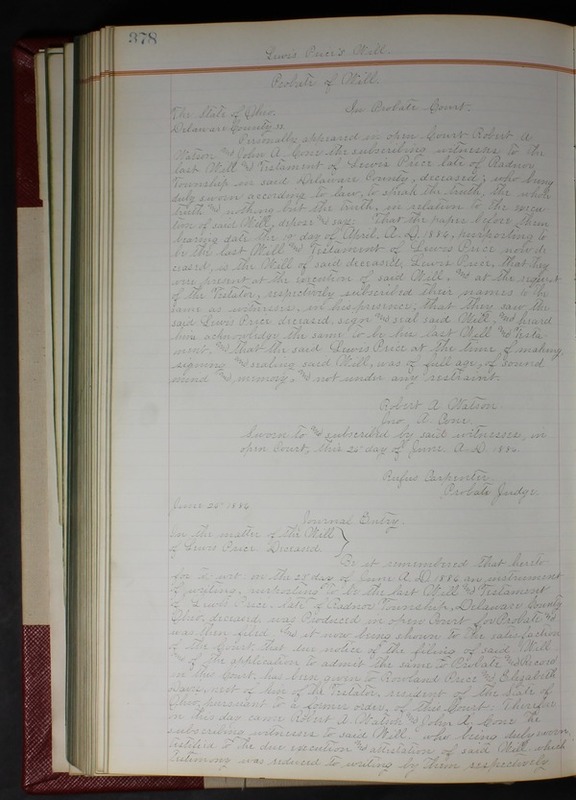 378
Lewis Price's Will.
Probate of Will.
The State of Ohio, In Probate Court.
Delaware County ss
Personally appeared in open Court Robert A
Watson and John A. Cone the subscribing witnesses to the
last Will and Testament of Lewis Price late of Radnor
Township in said Delaware County, deceased; who being
duly sworn according to law, to speak the truth, the whole
truth and nothing but the truth, in relation to the execu
tion of said Will, depose and say: That the paper before them
bearing date the day of April, A.D. 1886, purporting to
be the last Will and Testament of Lewis Price now de
ceased, is the Will of said deceased, Lewis Price, that they
were present at the execution of said Will, and at the request
of the Testator, respectively subscribed their names to the
same as witnesses, in his presence; that they saw the
said Lewis Price deceased, sign and seal said Will, and heard
him acknowledge the same to be his last Will and Testa
ment, and that the said Lewis Price at the time of making,
signing and sealing said Will, was of full age, of sound
mind and memory, and not under any restraint.
Robert A Watson
Jno. A. Cone
Sworn to and subscribed by said witnesses, in
open Court, this 25 day of June A.D. 1886.
Rufus Carpenter
Probate Judge.
June 25" 1886
Journal Entry.
In the matter of the Will
of Lewis Price Deceased
Be it remembered that hereto
fore to wit: on the 25 day of June A.D. 1886 an instrument
of writing, purporting to be the last Will and Testament
of Lewis Price, late of Radnor Township, Delaware County
Ohio, deceased, was Produced in open Court for Probate and
was then filed and it now being shown to the satisfaction
of the Court, that due notice of the filing of said Will
and of the application to admit the same to Probate and Record
in this Court, has been given to Rowland Price and Elizabeth
next of kin of the Testator, resident of the State of
Ohio, pursuant to a former order, of this Court: Therefor
on this day came Robert A Watson and John A, Cone the
subscribing witnesses to said Will, who being duly sworn,
testified to the due execution and attestation of said Will which
testimony was reduced to writing by them respectively